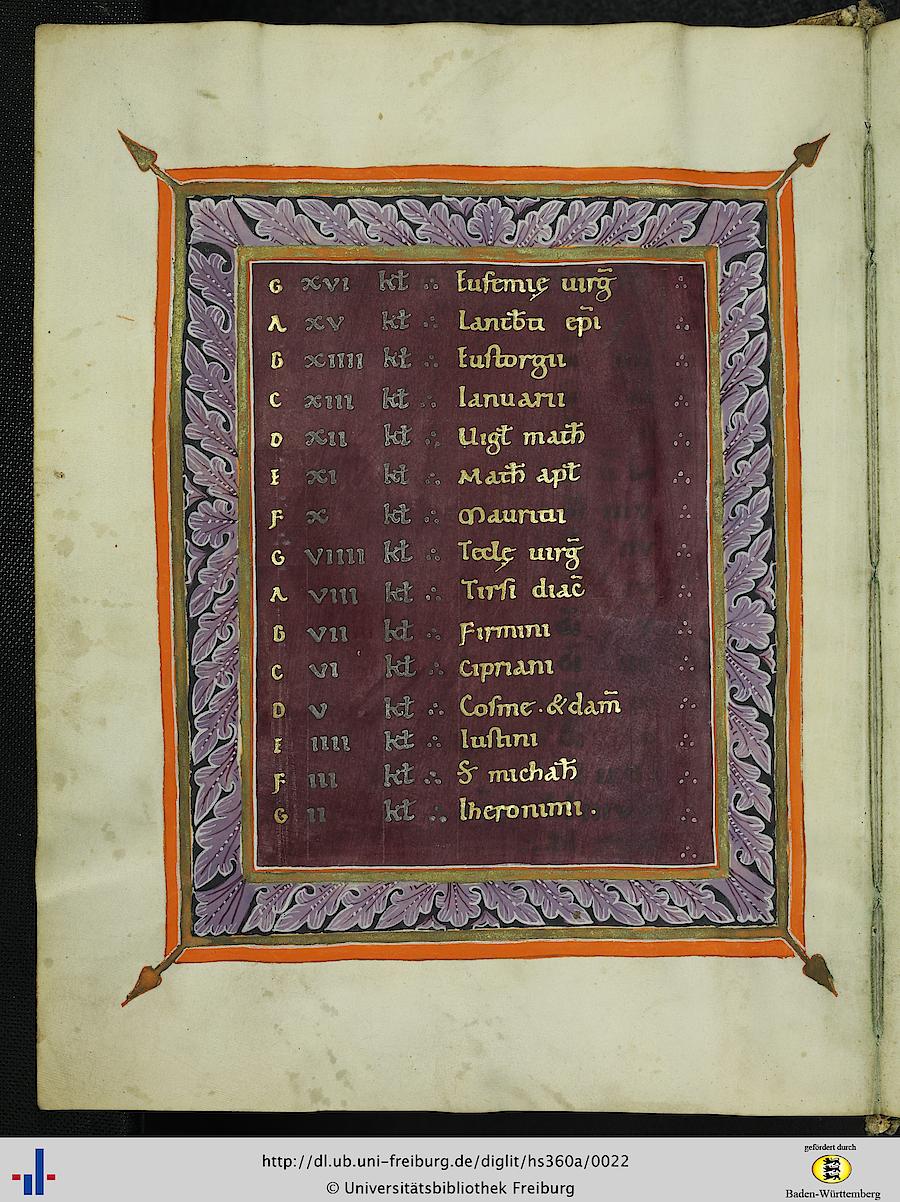 G XVI kł ∴ Eufemię uirg̃
A XV kł ∴ Lantb̄ti ep̄i
B XIIII kł ∴ Eustorgii
C XIII kł ∴ Ianuarii
D XII kł ∴ Uigł math̄
E XI kł ∴ Math̄ apłi
F X kł ∴ Mauritii
G VIIII kł ∴ Teclę uirg̃
A VIII kł ∴ Tirsi diac̄
B VII kł ∴ Firmini
C VI kł ∴ Cipriani
D V kł ∴ Cosme . & dam̄
E IIII kł ∴ Iustini
F III kł ∴ S michah̄
G II kł ∴ Iheronimi .
http://dl.ub.uni-freiburg.de/diglit/hs360a/0022
© Universitätsbibliothek Freiburg
gefördert durch
Baden-Württemberg